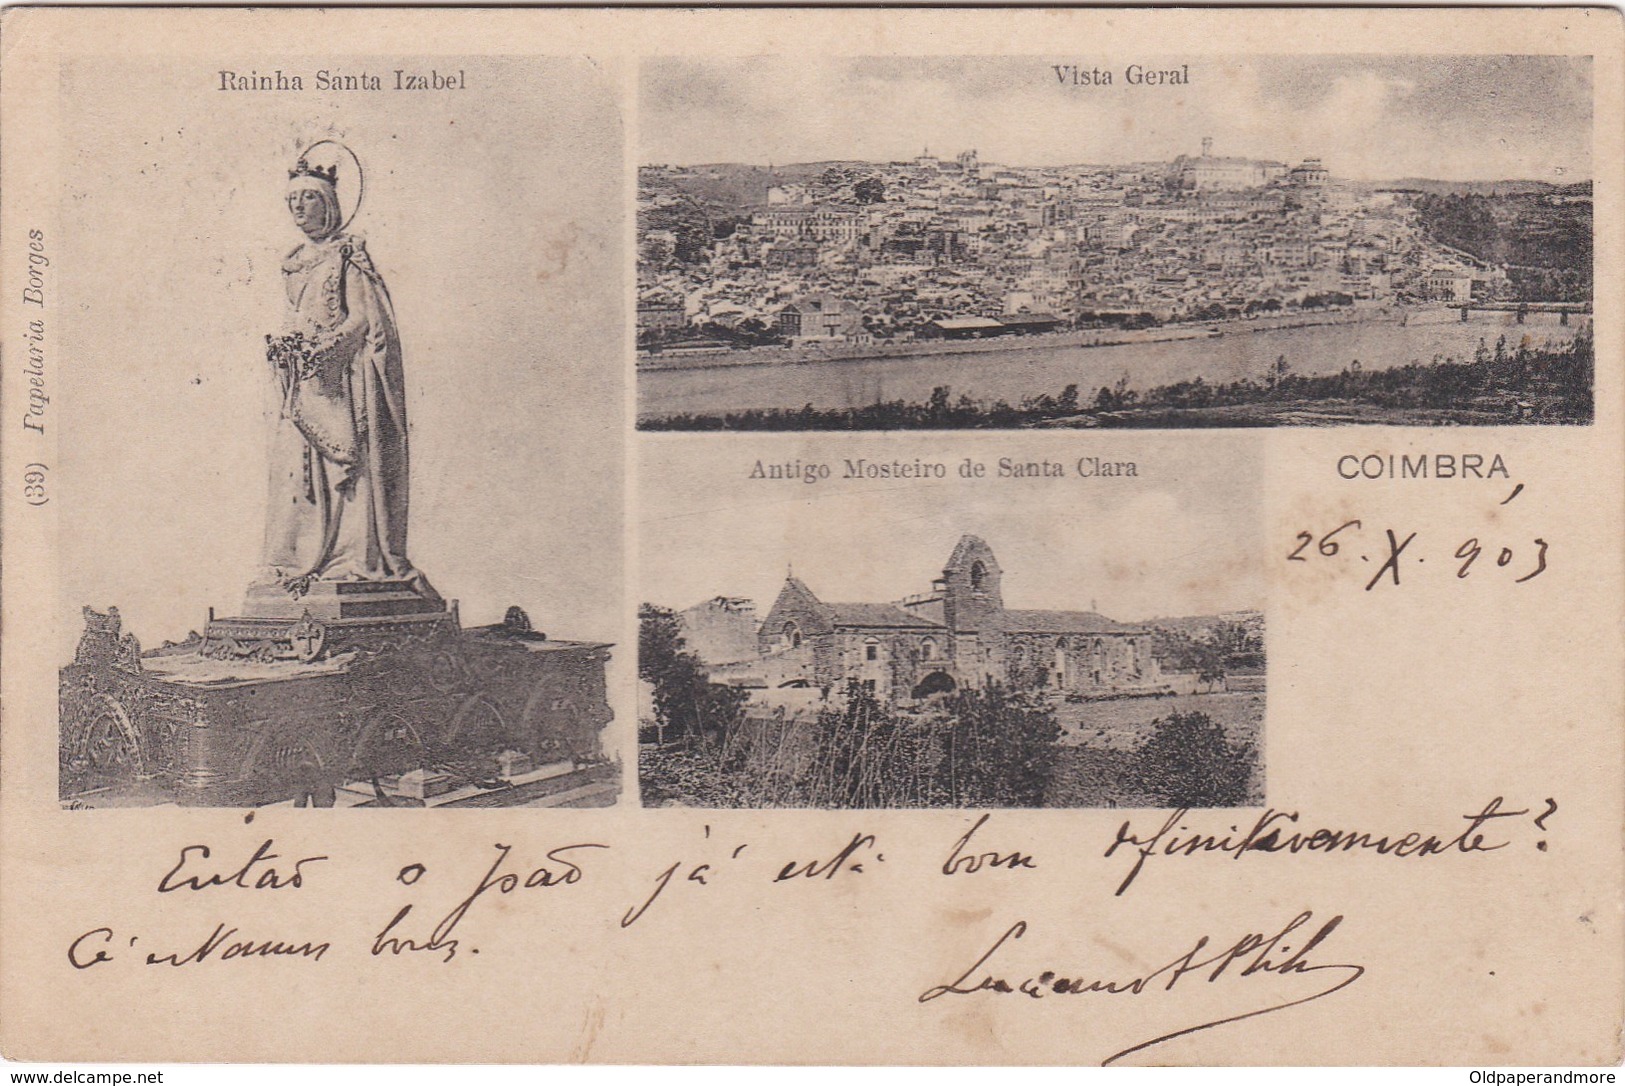 Rainha Santa Izabel
Vista Geral
(39) Papelaria Borges
Antigo Mosteiro de Santa Clara
COIMBRA
26. X. 903
Então o João já está bom definitivamente?
Cá estamos bons.
Luciano
www.delcampe.net
Oldpaperandmore